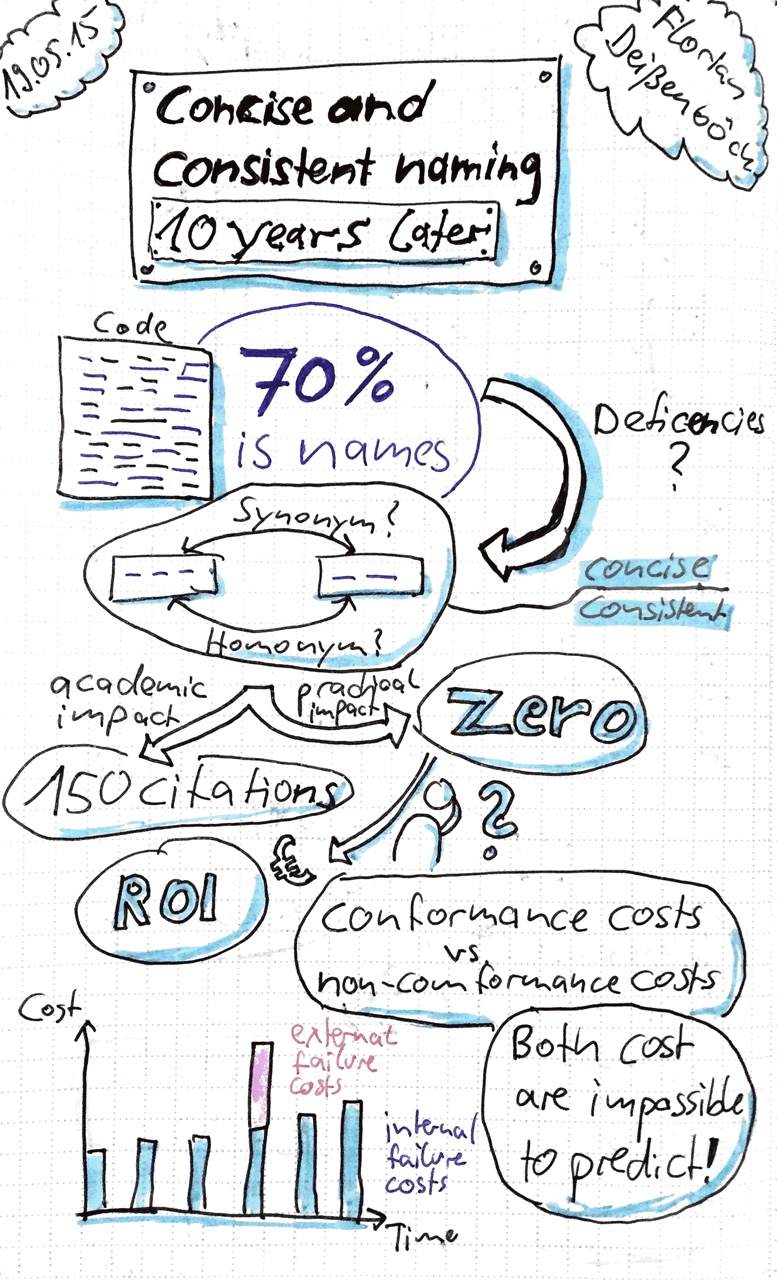 19.05.15
Florian
Deißenböck
Concise and
consistent naming
10 years later
Code
70%
is names
Deficencies
?
Synonym?
Homonym?
concise
consistent
academic
impact
practical
impact
Zero
150 citations
?
ROI
€
conformance costs
vs.
non-comformance costs
Cost
external
failure
costs
internal
failure
costs
Time
Both cost
are impossible
to predict!